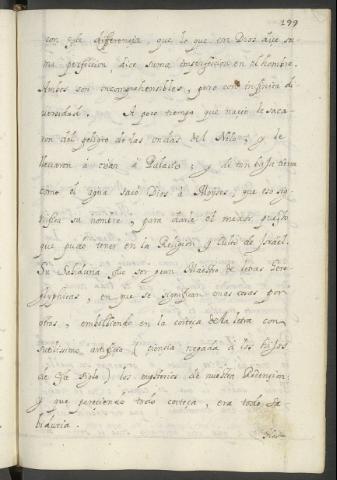 199
con esta diferencia, que lo que en Dios dice su-
ma perfeccion, dice suma imperfeccion en el hombre.
Ambos son incomprehensibles, pero con infinita di-
versidad. A poco tiempo que nacio le saca-
ron del peligro de las ondas del Nilo; y le
llevaron à criar à Palacio; y de tan baja tierra
como el agua sacò Dios à Moyses, que eso sig-
nifica su nombre, para darle el mayor puesto
que pudo tener en la Religion, y Culto de Israel.
Su Sabiduria fue ser gran Maestro de letras Gero-
glyphicas, en que se significan unas cosas por
otras, embebiendo en la corteza de la letra con
sutilissimo artificio (ciencia negada à los hijos
de este siglo) los mysterios de nuestra Redempcion,
y que pareciendo todo corteza, era todo Sa-
biduria.